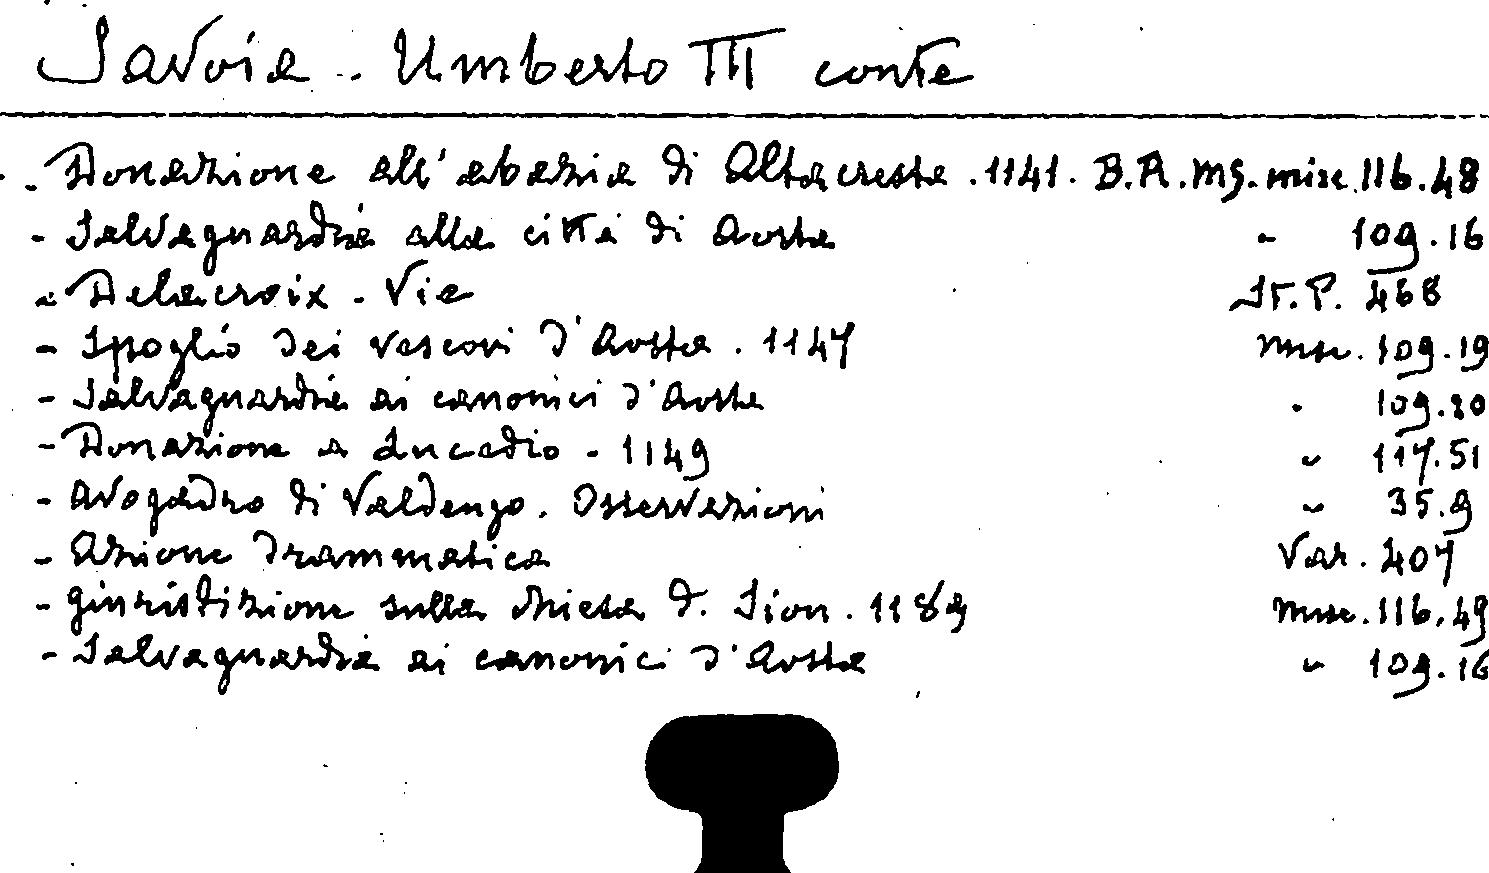 Savoia - Umberto III conte
- Donazione all'abazia di Altacresta. 1141. B.A. MS. misc. 116.48
- Salvaguardia alla città di Aosta " 109.16
- Delacroix - Vie St. P. 468
- Spoglio dei vescovi d'Aosta. 1147 Misc. 109.19
- Salvaguardia ai canonici d'Aosta " 109.20
- Donazione a Lucedio - 1149 " 117.51
- Avogadro di Valdengo. Osservazioni " 35.9
- Azione drammatica Var. 407
- Giurisdizione sulla chiesa d. Sion. 1189 Misc. 116.49
- Salvaguardia ai canonici d'Aosta " 109.16